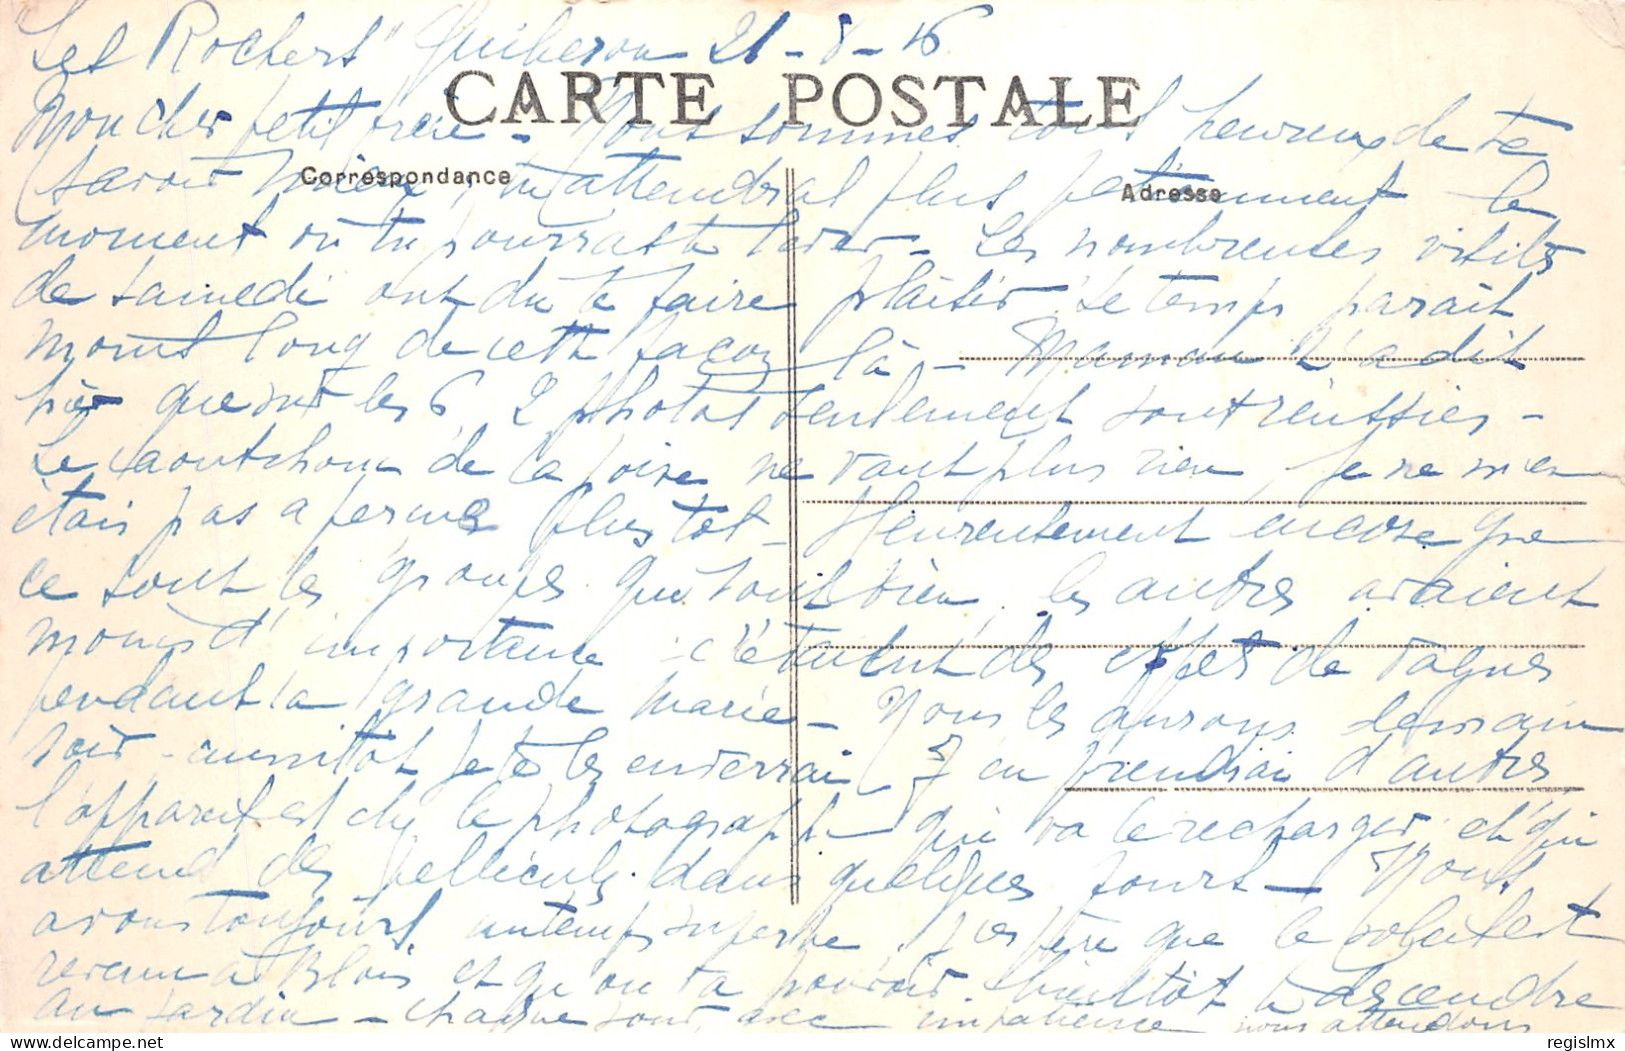 "Les Rochers" Quiberon 21-8-16
CARTE POSTALE
Mon cher petit frère - Nous sommes tous heureux de te
Correspondance
Adresse
savoir mieux, tu attendras plus patiemment le
moment où tu pourras te lever - Les nombreuses visites
de samedi ont du te faire plaisir. Le temps parait
moins long de cette façon là - Maman t'a dit
hier que sur les 6, 2 photos seulement sont réussies -
Le caoutchouc de la poire ne vaut plus rien, je ne m'en
étais pas aperçue plus tôt - Heureusement encore que
ce sont les groupes qui sont bien, les autres avaient
moins d'importance c'étaient des effets de vagues
pendant la grande marée - Nous les aurons demain
soir - aussitôt je te les enverrai J'en prendrai d'autres
l'appareil est chez le photographe qui va le recharger et qui
attend des pellicules dans quelques jours - Nous
avons toujours un temps superbe, j'espère que le soleil est
revenu à Blois et qu'on va pouvoir bientôt te descendre
au jardin - chaque jour avec impatience nous attendons
© regislmx